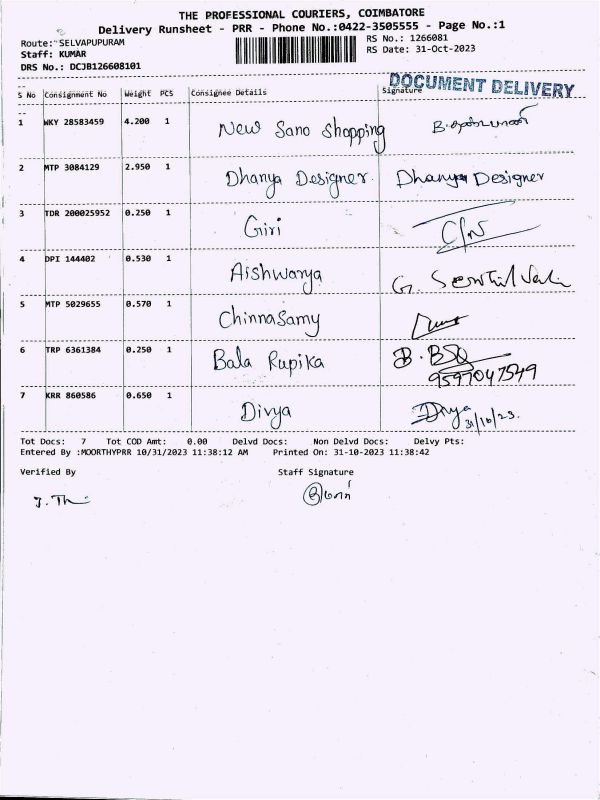 THE PROFESSIONAL COURIERS, COIMBATORE
Delivery Runsheet - PRR - Phone No.:0422-3505555 - Page No.:1
Route: SELVAPUPURAM
RS No.: 1266081
Staff: KUMAR
RS Date: 31-Oct-2023
DRS No.: DCJB126608101
DOCUMENT DELIVERY
S No Consignment No Weight PCS Consignee Details Signature
1 WKY 28583459 4.200 1 New Sano Shopping
2 MTP 3084129 2.950 1 Dhanya Designer Dhanya Designer
3 TDR 200025952 0.250 1 Giri
4 DPI 144402 0.530 1 Aishwarya
5 MTP 5029655 0.570 1 Chinnasamy
6 TRP 6361384 0.250 1 Bala Rupika
9597047549
7 KRR 860586 0.650 1 Divya Divya
31/10/23.
Tot Docs: 7 Tot COD Amt: 0.00 Delvd Docs: Non Delvd Docs: Delvy Pts:
Entered By :MOORTHYPRR 10/31/2023 11:38:12 AM Printed On: 31-10-2023 11:38:42
Verified By Staff Signature